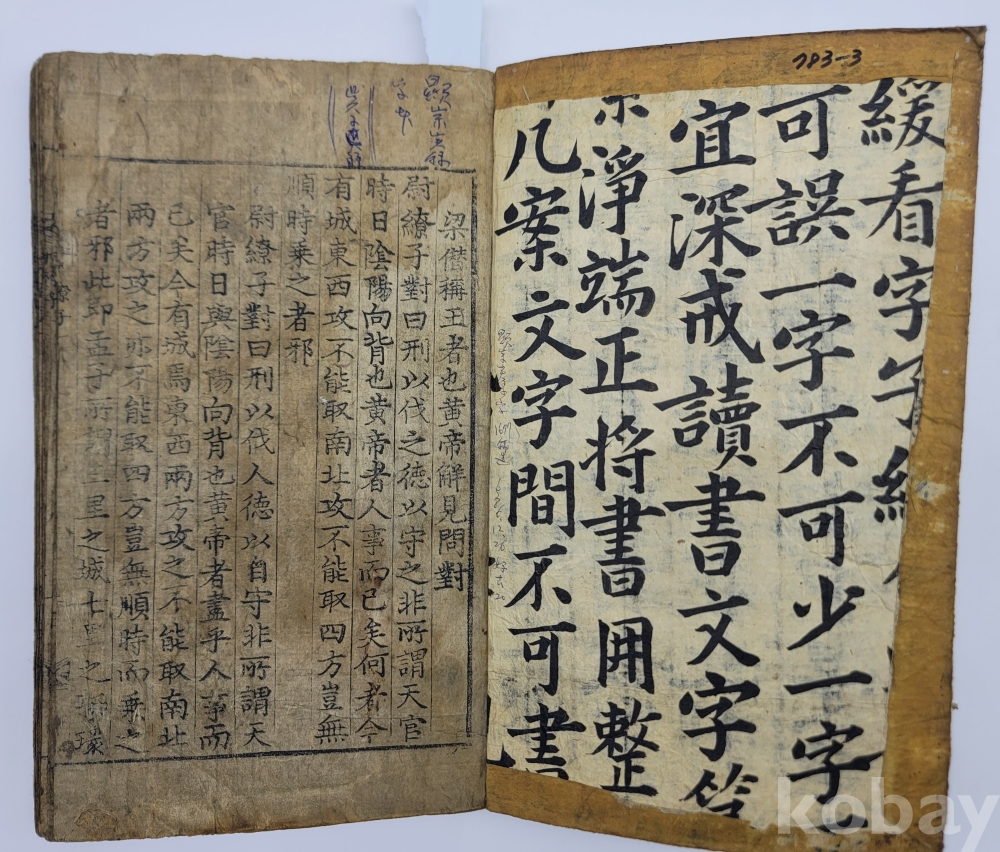 783-3
緩看字
可誤一字不可少一字
宜深戒讀書文字
淨端正將書冊整
几案文字間不可書
顯宗實錄
字
梁僭稱王者也黃帝解見問對
尉繚子對曰刑以伐之德以守之非所謂天官
時日陰陽向背也黃帝者人事而已矣何者今
有城東西攻不能取南北攻不能取四方豈無
順時乘之者邪
尉繚子對曰刑以伐人德以自守非所謂天
官時日與陰陽向背也黃帝者盡乎人事而
已矣今有城焉東西兩方攻之不能取南北
兩方攻之亦不能取四方豈無順時而乘之
者邪此即孟子所謂三里之城七里之郭環
kobay